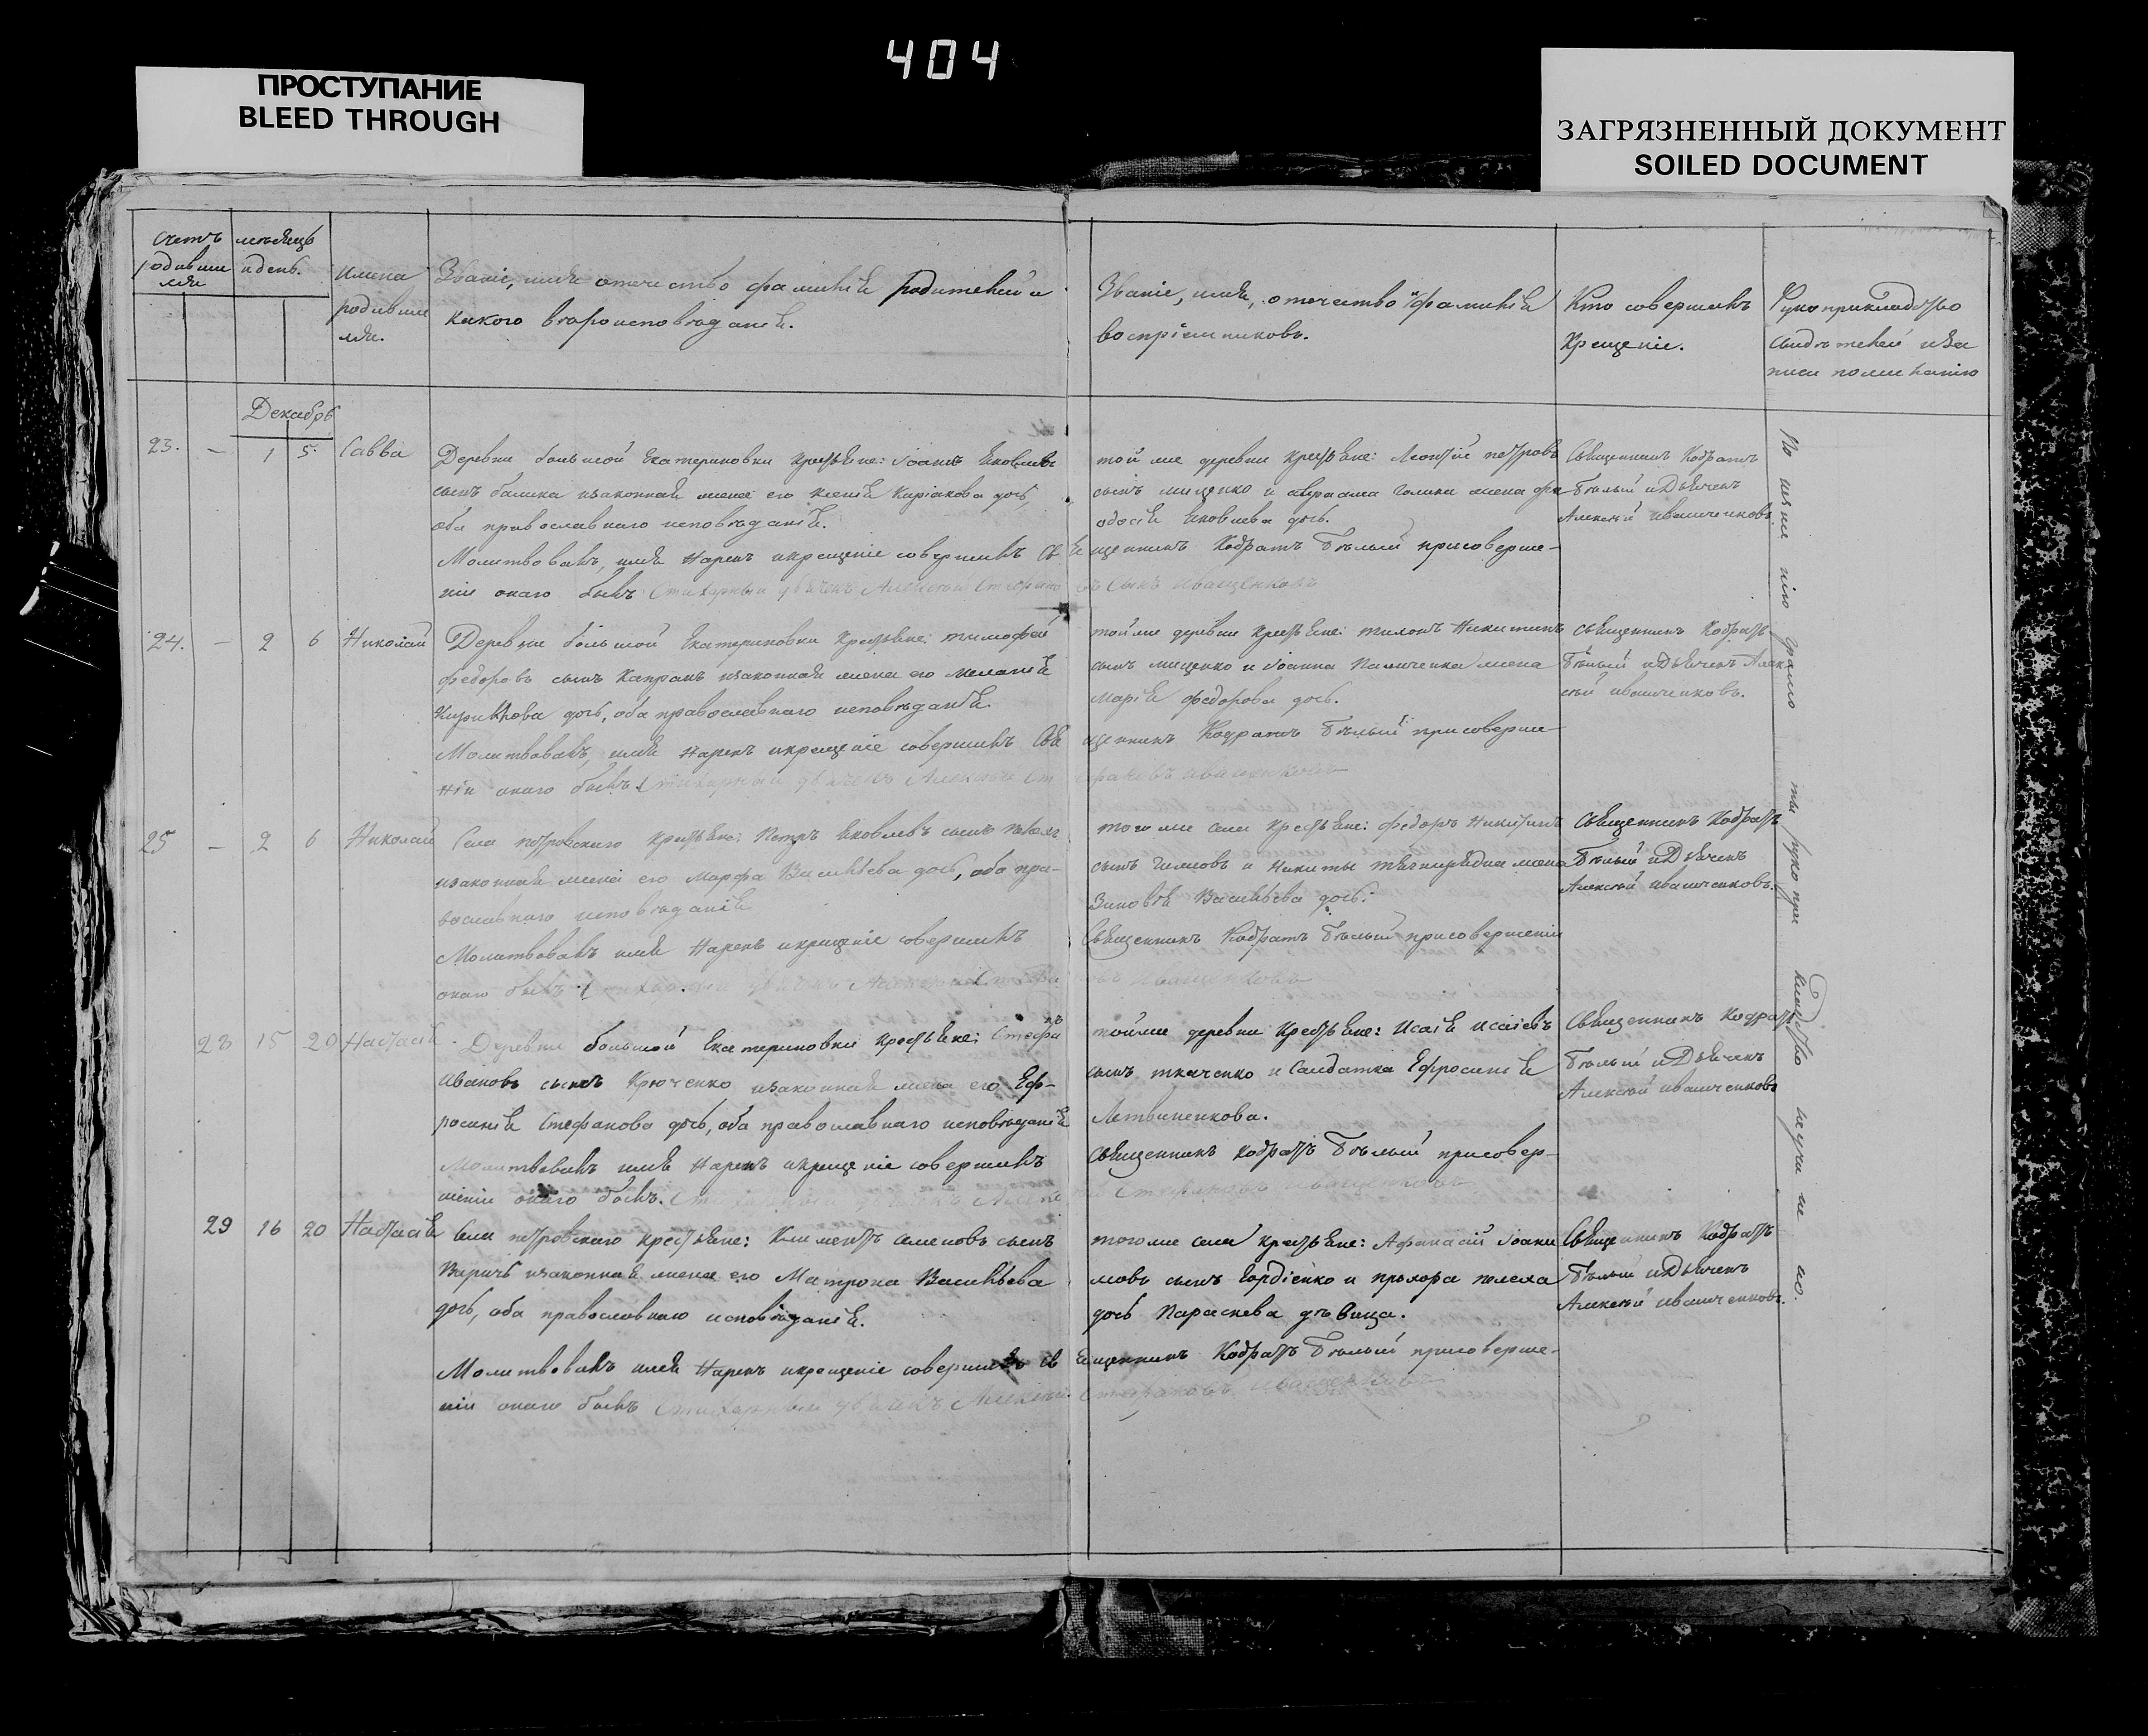 404
ПРОСТУПАНИЕ
BLEED THROUGH
ЗАГРЯЗНЕННЫЙ ДОКУМЕНТ
SOILED DOCUMENT
Счетъ родившихся
месяцъ и день.
имена родившихся.
Званіе, имя отечество фамилія родителей и
какого вероисповѣданія.
Званіе, имя, отечество и фамилія
воспріемниковъ.
Кто совершалъ
Крещеніе.
Рукоприкладство
свидѣтелей
Декабрь
23. – 1 5. Савва
Деревни большой Екатериновки Крестьяне: Іоаннъ Яковлевъ
сынъ и законная жена его Ксенія Киріакова дочь,
оба православнаго исповѣданія.
Молитвовалъ, имя Нарекъ и крещеніе совершалъ Свя
ніи онаго былъ Стихарный дьячекъ Алексѣй Стефано
той же деревни крестьяне: Леонтій петровъ
сынъ мищенко и авраама жена фе
одосія Яковлева дочь.
щенникъ Кодратъ Бѣлый при соверше-
въ сынъ иващенковъ
Священникъ Кодратъ
Бѣлый и Дьячекъ
Алексѣй иващенковъ.
24. – 2 6 Николай
Деревни большой Екатериновки Крестьяне: тимофей
федоровъ сынъ Капранъ и законная жена его меланія
дочь, оба православнаго исповѣданія.
Молитвовалъ, имя Нарекъ и крещеніе совершалъ Свя
ніи онаго былъ Стихарный дьячекъ Алексѣй Ст
той же деревни крестьяне: тихонъ Никитинъ
сынъ мищенко и Іоанна жена
марія федорова дочь.
щенникъ Кодратъ Бѣлый при соверше
ефановъ иващенковъ
священникъ Кодратъ
Бѣлый и Дьячекъ Алек
сѣй иващенковъ.
25 – 2 6 Николай
Села петровскаго крестьяне: Петръ Яковлевъ сынъ
и законная жена его Марфа Васильева дочь, оба пра-
вославнаго исповѣданія
Молитвовалъ имя Нарекъ и крещеніе совершалъ
онаго былъ Стихарный дьячекъ Алексѣй Стефа
того же села крестьяне: федоръ Никитинъ
сынъ и Никиты жена
Васильева дочь.
Священникъ Кодратъ Бѣлый при совершеніи
новъ иващенковъ
Священникъ Кодратъ
Бѣлый и Дьячекъ
Алексѣй иващенковъ.
28 15 20 Настасія
Деревни большой Екатериновки крестьяне: Стефанъ
ивановъ сынъ Крюченко и законная жена его Еф-
росинія Стефанова дочь, оба православнаго исповѣданія
Молитвовалъ имя Нарекъ и крещеніе совершалъ
шеніи онаго былъ. Стихарный дьячекъ Алексѣ
той же деревни крестьяне: Исаія Исаіевъ
сынъ ткаченко и Салдатка Ефросинія
Летвиненкова.
священникъ Кодратъ Бѣлый при совер-
й Стефановъ иващенковъ
Священникъ Кодратъ
Бѣлый и Дьячекъ
Алексѣй иващенковъ
29 16 20 Настасія
Села петровскаго крестьяне: Климентъ семеновъ сынъ
Варичъ и законная жена его Матрона Васильева
дочь, оба православнаго исповѣданія.
Молитвовалъ имя Нарекъ и крещеніе совершалъ св
ніи онаго былъ Стихарный дьячекъ Алексѣй
того же села крестьяне: Афанасій
сынъ Гордіенко и прохора
дочь Параскева дѣвица.
ященникъ Кодратъ Бѣлый при соверше-
Стефановъ иващенковъ
Священникъ Кодратъ
Бѣлый и Дьячекъ
Алексѣй иващенковъ.